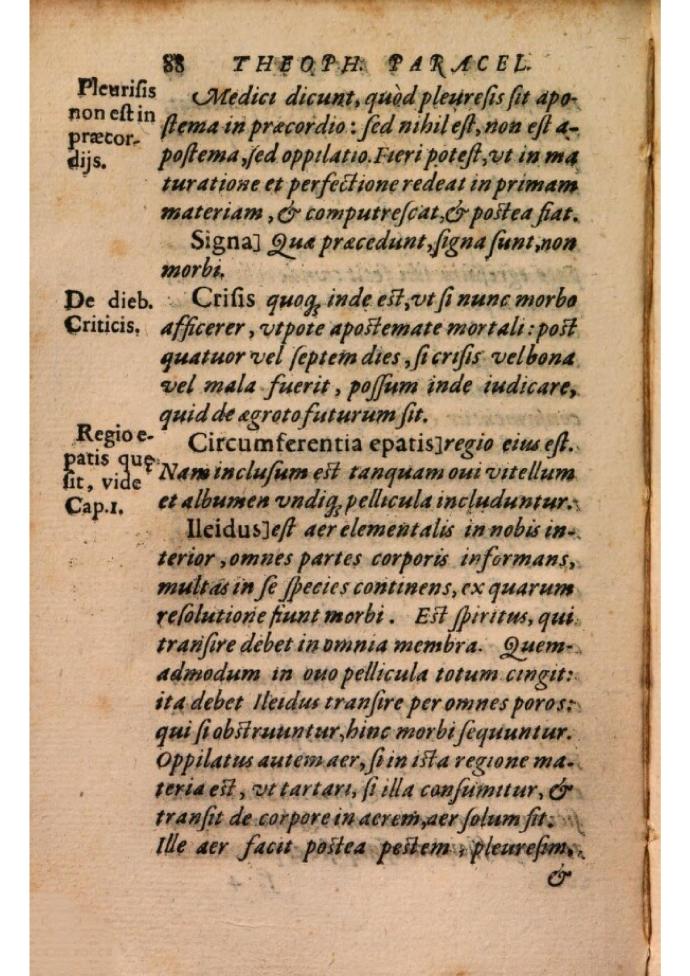 88 THEOPH. PARACEL.
Pleurisis
non est in
præcor-
dijs.
Medici dicunt, quòd pleuresis sit apo-
stema in præcordio: sed nihil est, non est a-
postema, sed oppilatio. Fieri potest, vt in ma
turatione et perfectione redeat in primam
materiam, & computrescat, & postea fiat.
Signa] Quæ præcedunt, signa sunt, non
morbi.
De dieb.
Criticis.
Crisis quoq; inde est, vt si nunc morbo
afficerer, vtpote apostemate mortali: post
quatuor vel septem dies, si crisis vel bona
vel mala fuerit, possum inde iudicare,
quid de ægroto futurum sit.
Regio e-
patis quę
sit, vide
Cap.1.
Circumferentia epatis] regio eius est.
Nam inclusum est tanquam oui vitellum
et albumen vndiq; pellicula includuntur.
Ileidus] est aer elementalis in nobis in-
terior, omnes partes corporis informans,
multas in se species continens, ex quarum
resolutione fiunt morbi. Est spiritus, qui
transire debet in omnia membra. Quem-
admodum in ouo pellicula totum cingit:
ita debet Ileidus transire per omnes poros:
qui si obstruuntur, hinc morbi sequuntur.
Oppilatus autem aer, si in ista regione ma-
teria est, vt tartari, si illa consumitur, &
transit de corpore in aerem, aer solum fit.
Ille aer facit postea pestem, pleuresim,
&